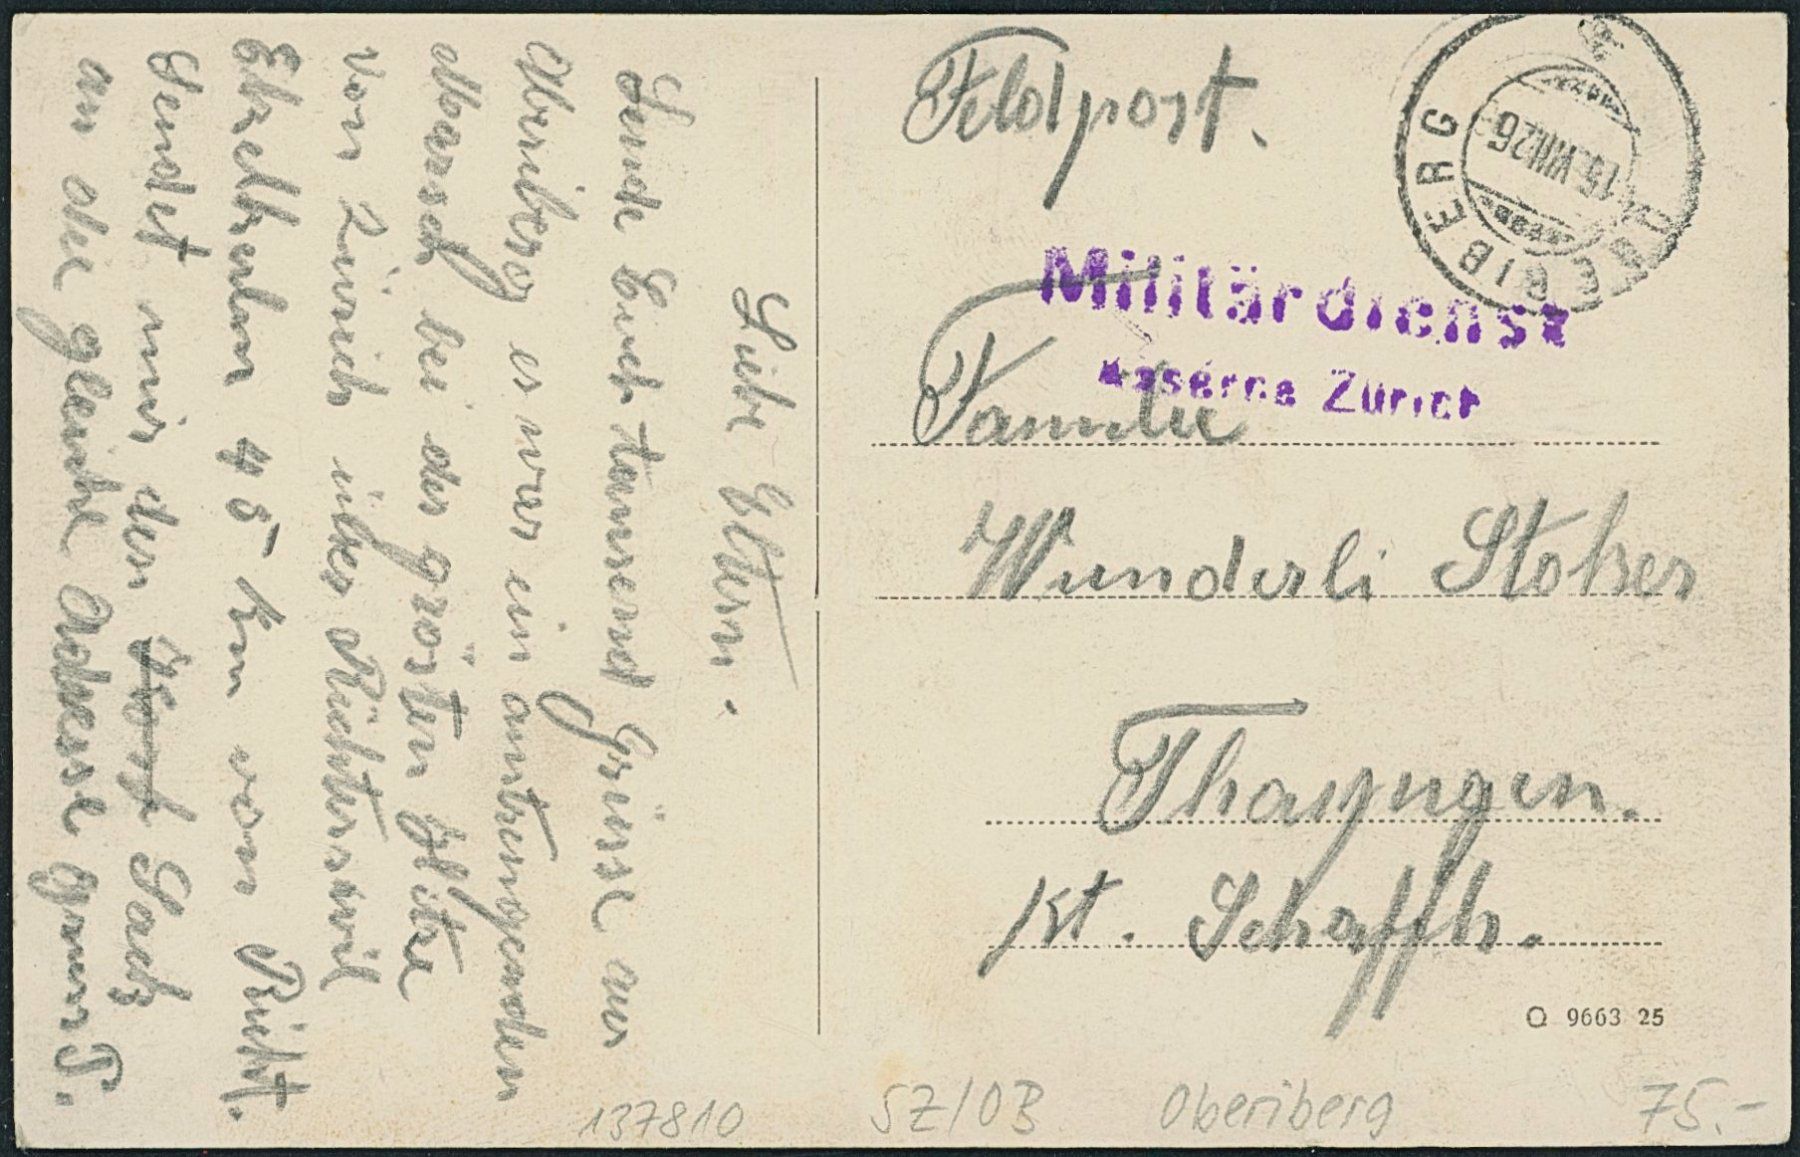 Feldpost.
OBERIBERG
15.VIII.26
Militärdienst
Kaserne Zürich
Familie
Wunderli Stoker
Thayngen.
Kt. Schaffh.
O 9663 25
Liebe Eltern.
Sende Euch tausend Grüsse aus
Oberiberg es war ein anstrengenden
Marsch bei der grösten Hitze
von Zürich über Richterswil
Etzelkulm 45 Km von Zürich.
Sendet mir den Sack
an die gleiche Adresse
137810
SZ/OB
Oberiberg
75.-